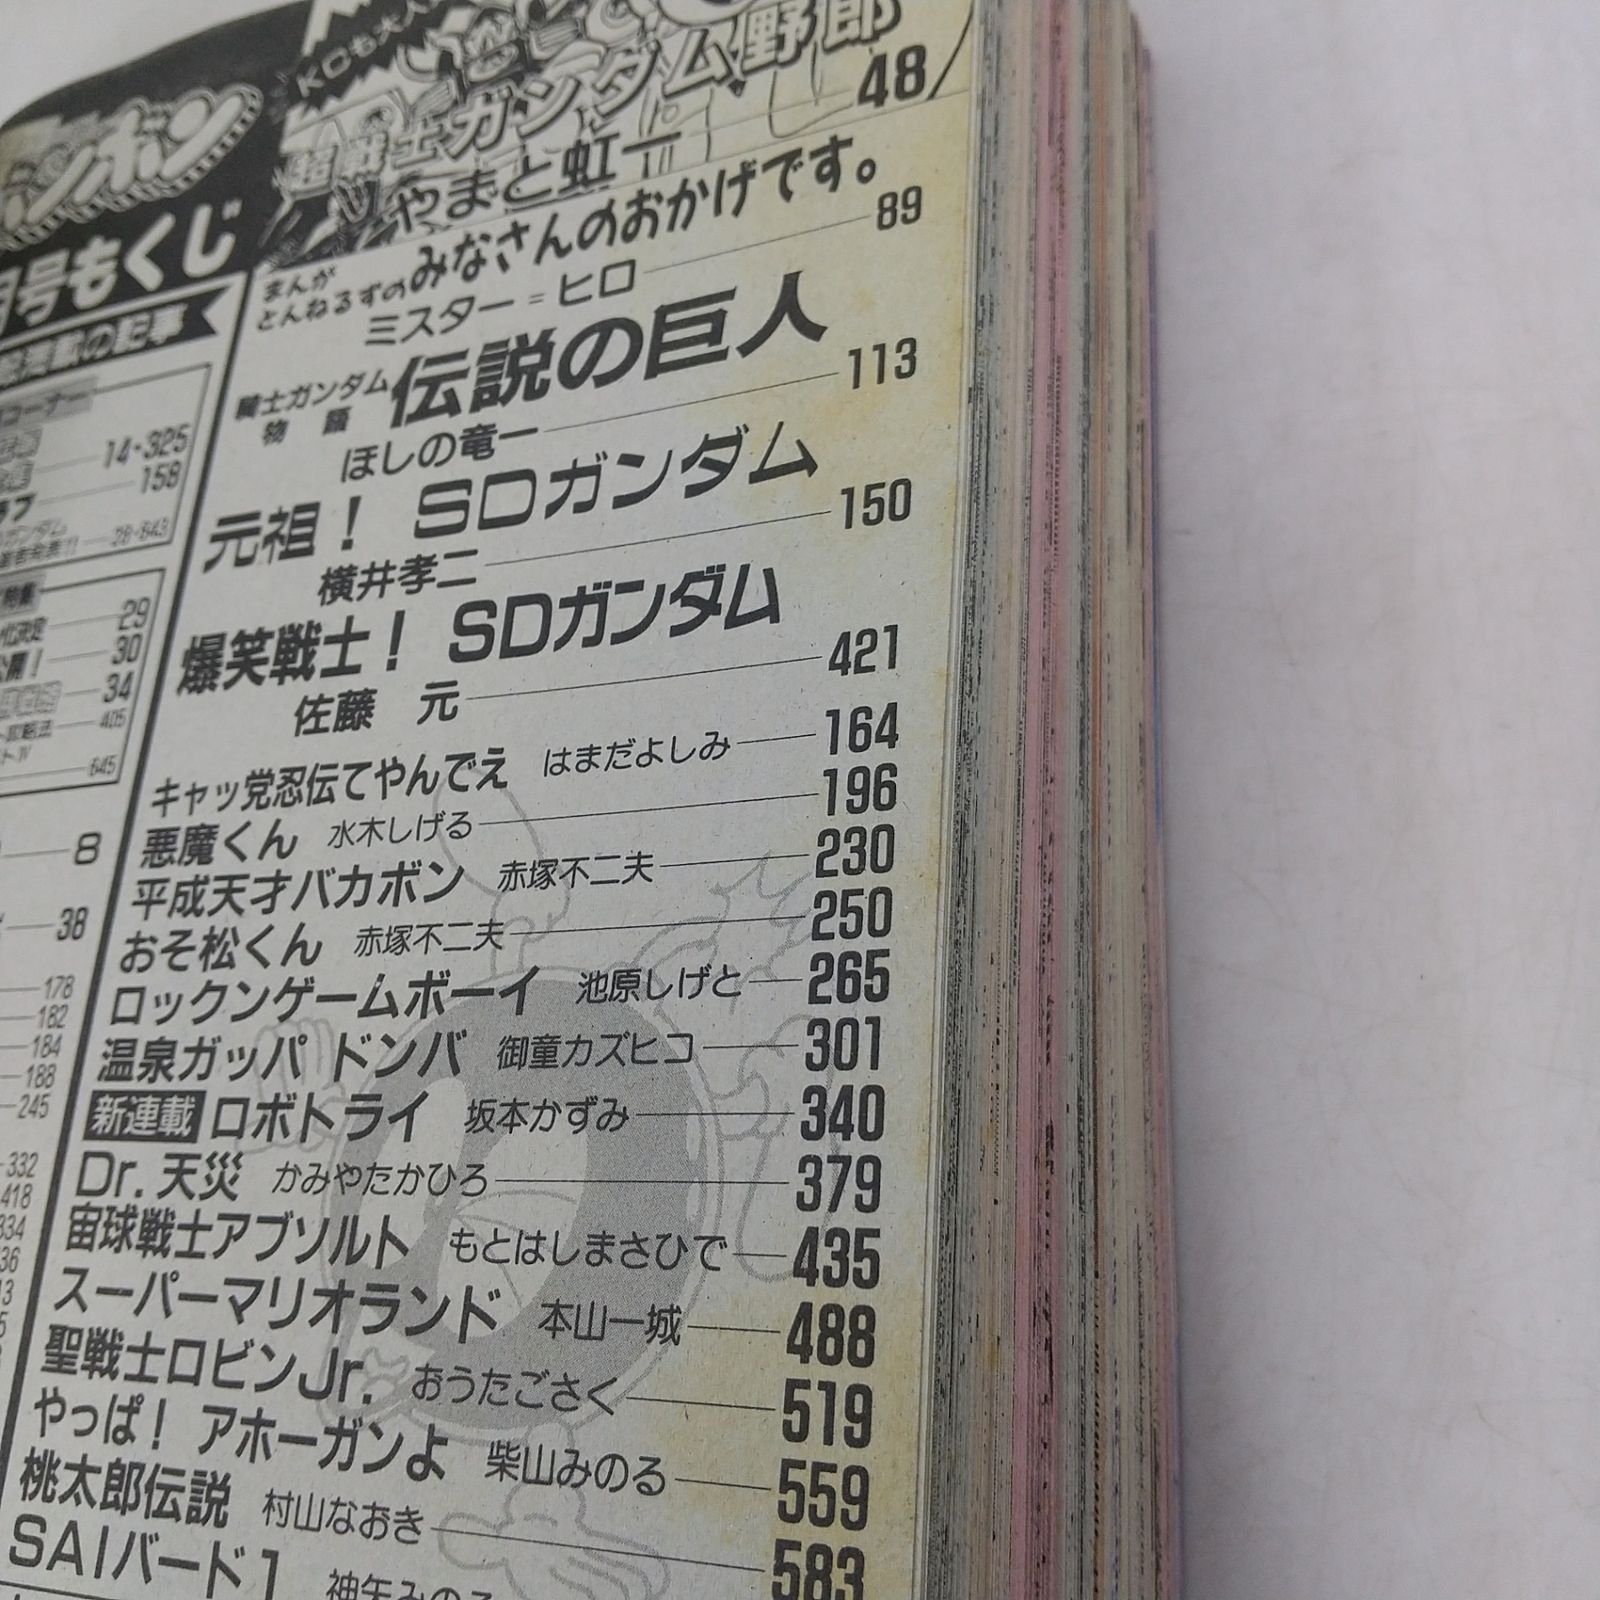 ボンボン
号もくじ
の記事
コーナー
14・325
158
ガンダム
28・643
特集
決定
29
公開!
30
34
405
645
8
38
178
182
184
188
245
332
418
KOも大
超戦士ガンダム野郎
48
やまと虹一
まんが
とんねるずのみなさんのおかげです。
89
ミスター=ヒロ
騎士ガンダム
物語
伝説の巨人
113
ほしの竜一
元祖! SDガンダム
150
横井孝二
爆笑戦士! SDガンダム
421
佐藤 元
キャッ党忍伝てやんでえ はまだよしみ 164
悪魔くん 水木しげる 196
平成天才バカボン 赤塚不二夫 230
おそ松くん 赤塚不二夫 250
ロックンゲームボーイ 池原しげと 265
温泉ガッパ ドンバ 御童カズヒコ 301
新連載 ロボトライ 坂本かずみ 340
Dr.天災 かみやたかひろ 379
宙球戦士アブソルト もとはしまさひで 435
スーパーマリオランド 本山一城 488
聖戦士ロビンJr. おうたごさく 519
やっぱ! アホーガンよ 柴山みのる 559
桃太郎伝説 村山なおき 583
SAIバード1 神矢みのる